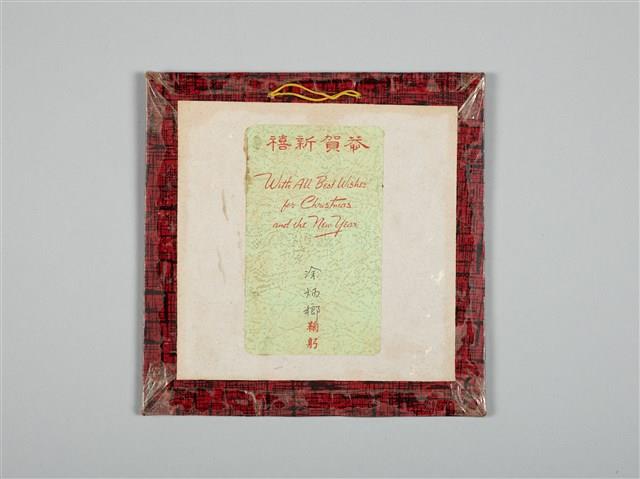 恭賀新禧
With All Best Wishes
for Christmas
and the New Year
涂炳鞠躬